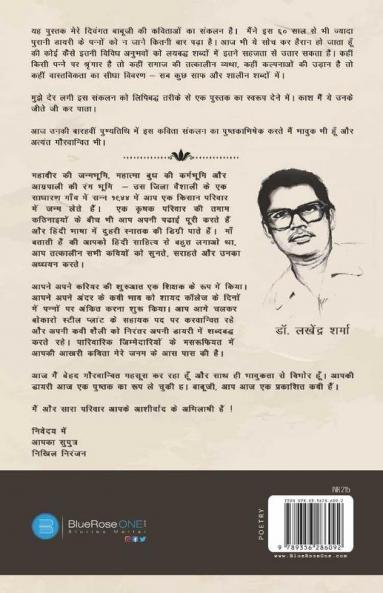 यह पुस्तक मेरे दिवंगत बाबूजी की कविताओं का संकलन है। मैंने इस ६० साल से भी ज्यादा
पुरानी डायरी के पन्नों को न जाने कितनी बार पढ़ा है। आज भी ये सोच कर हैरान हो जाता हूँ
की कोई कैसे इतनी विविध अनुभवों को लयबद्ध शब्दों में इतने सहजता से उतार सकता है। कहीं
किसी पन्ने पर श्रृंगार है तो कहीं समाज की तत्कालीन व्यथा, कहीं कल्पनाओं की उड़ान है तो
कहीं वास्तविकता का सीधा विवरण – सब कुछ साफ और शालीन शब्दों में।
मुझे देर लगी इस संकलन को लिपिबद्ध तरीके से एक पुस्तक का स्वरूप देने में। काश मैं ये उनके
जीते जी कर पाता।
आज उनकी बारहवीं पुण्यतिथि में इस कविता संकलन का पुस्तकाभिषेक करते मैं भावुक भी हूँ और
अत्यंत गौरवान्वित भी।
महावीर की जन्मभूमि, महात्मा बुध की कर्मभूमि और
आम्रपाली की रंग भूमि – उस जिला वैशाली के एक
साधारण गाँव में सन्न १९४४ में आप एक किसान परिवार
में जन्म लेते हैं। एक कृषक परिवार की तमाम
कठिनाइयों के बीच भी आप अपनी पढाई पूरी करते हैं
और हिंदी भाषा में दुहरी स्नातक की डिग्री पाते हैं। माँ
बताती हैं की आपको हिंदी साहित्य से बहुत लगाओ था,
आप तत्कालीन सभी कवियों को सुनते, सराहते और उनका
अध्ययन करते।
आपने अपने करियर की शुरुआत एक शिक्षक के रूप में किया।
आपने अपने अंदर के कवी भाव को शायद कॉलेज के दिनों
में पन्नों पर अंकित करना शुरू किया। आप आगे चलकर
बोकारो स्टील प्लांट के सहायक पद पर कार्यान्वित रहे
और अपनी कवी शैली को निरंतर अपनी डायरी में शब्दबद्ध
करते रहे। पारिवारिक जिम्मेदारियों के मसरूफियत में
आपकी आखरी कविता मेरे जनम के आस पास की है।
डॉ. लखेंद्र शर्मा
आज मैं बेहद गौरवान्वित महसूस कर रहा हूँ और साथ ही भावुकता से विभोर हूँ। आपकी
डायरी आज एक पुस्तक का रूप ले चुकी ह। बाबूजी, आप आज एक प्रकाशित कवी हैं।
मैं और सारा परिवार आपके आशीर्वाद के अभिलाषी हैं !
निवेदन में
आपका सुपुत्र
निखिल निरंजन
BlueRose ONE
Stories Matter
POETRY
INR 215
9 789356 286092
www.BlueRoseONE.com